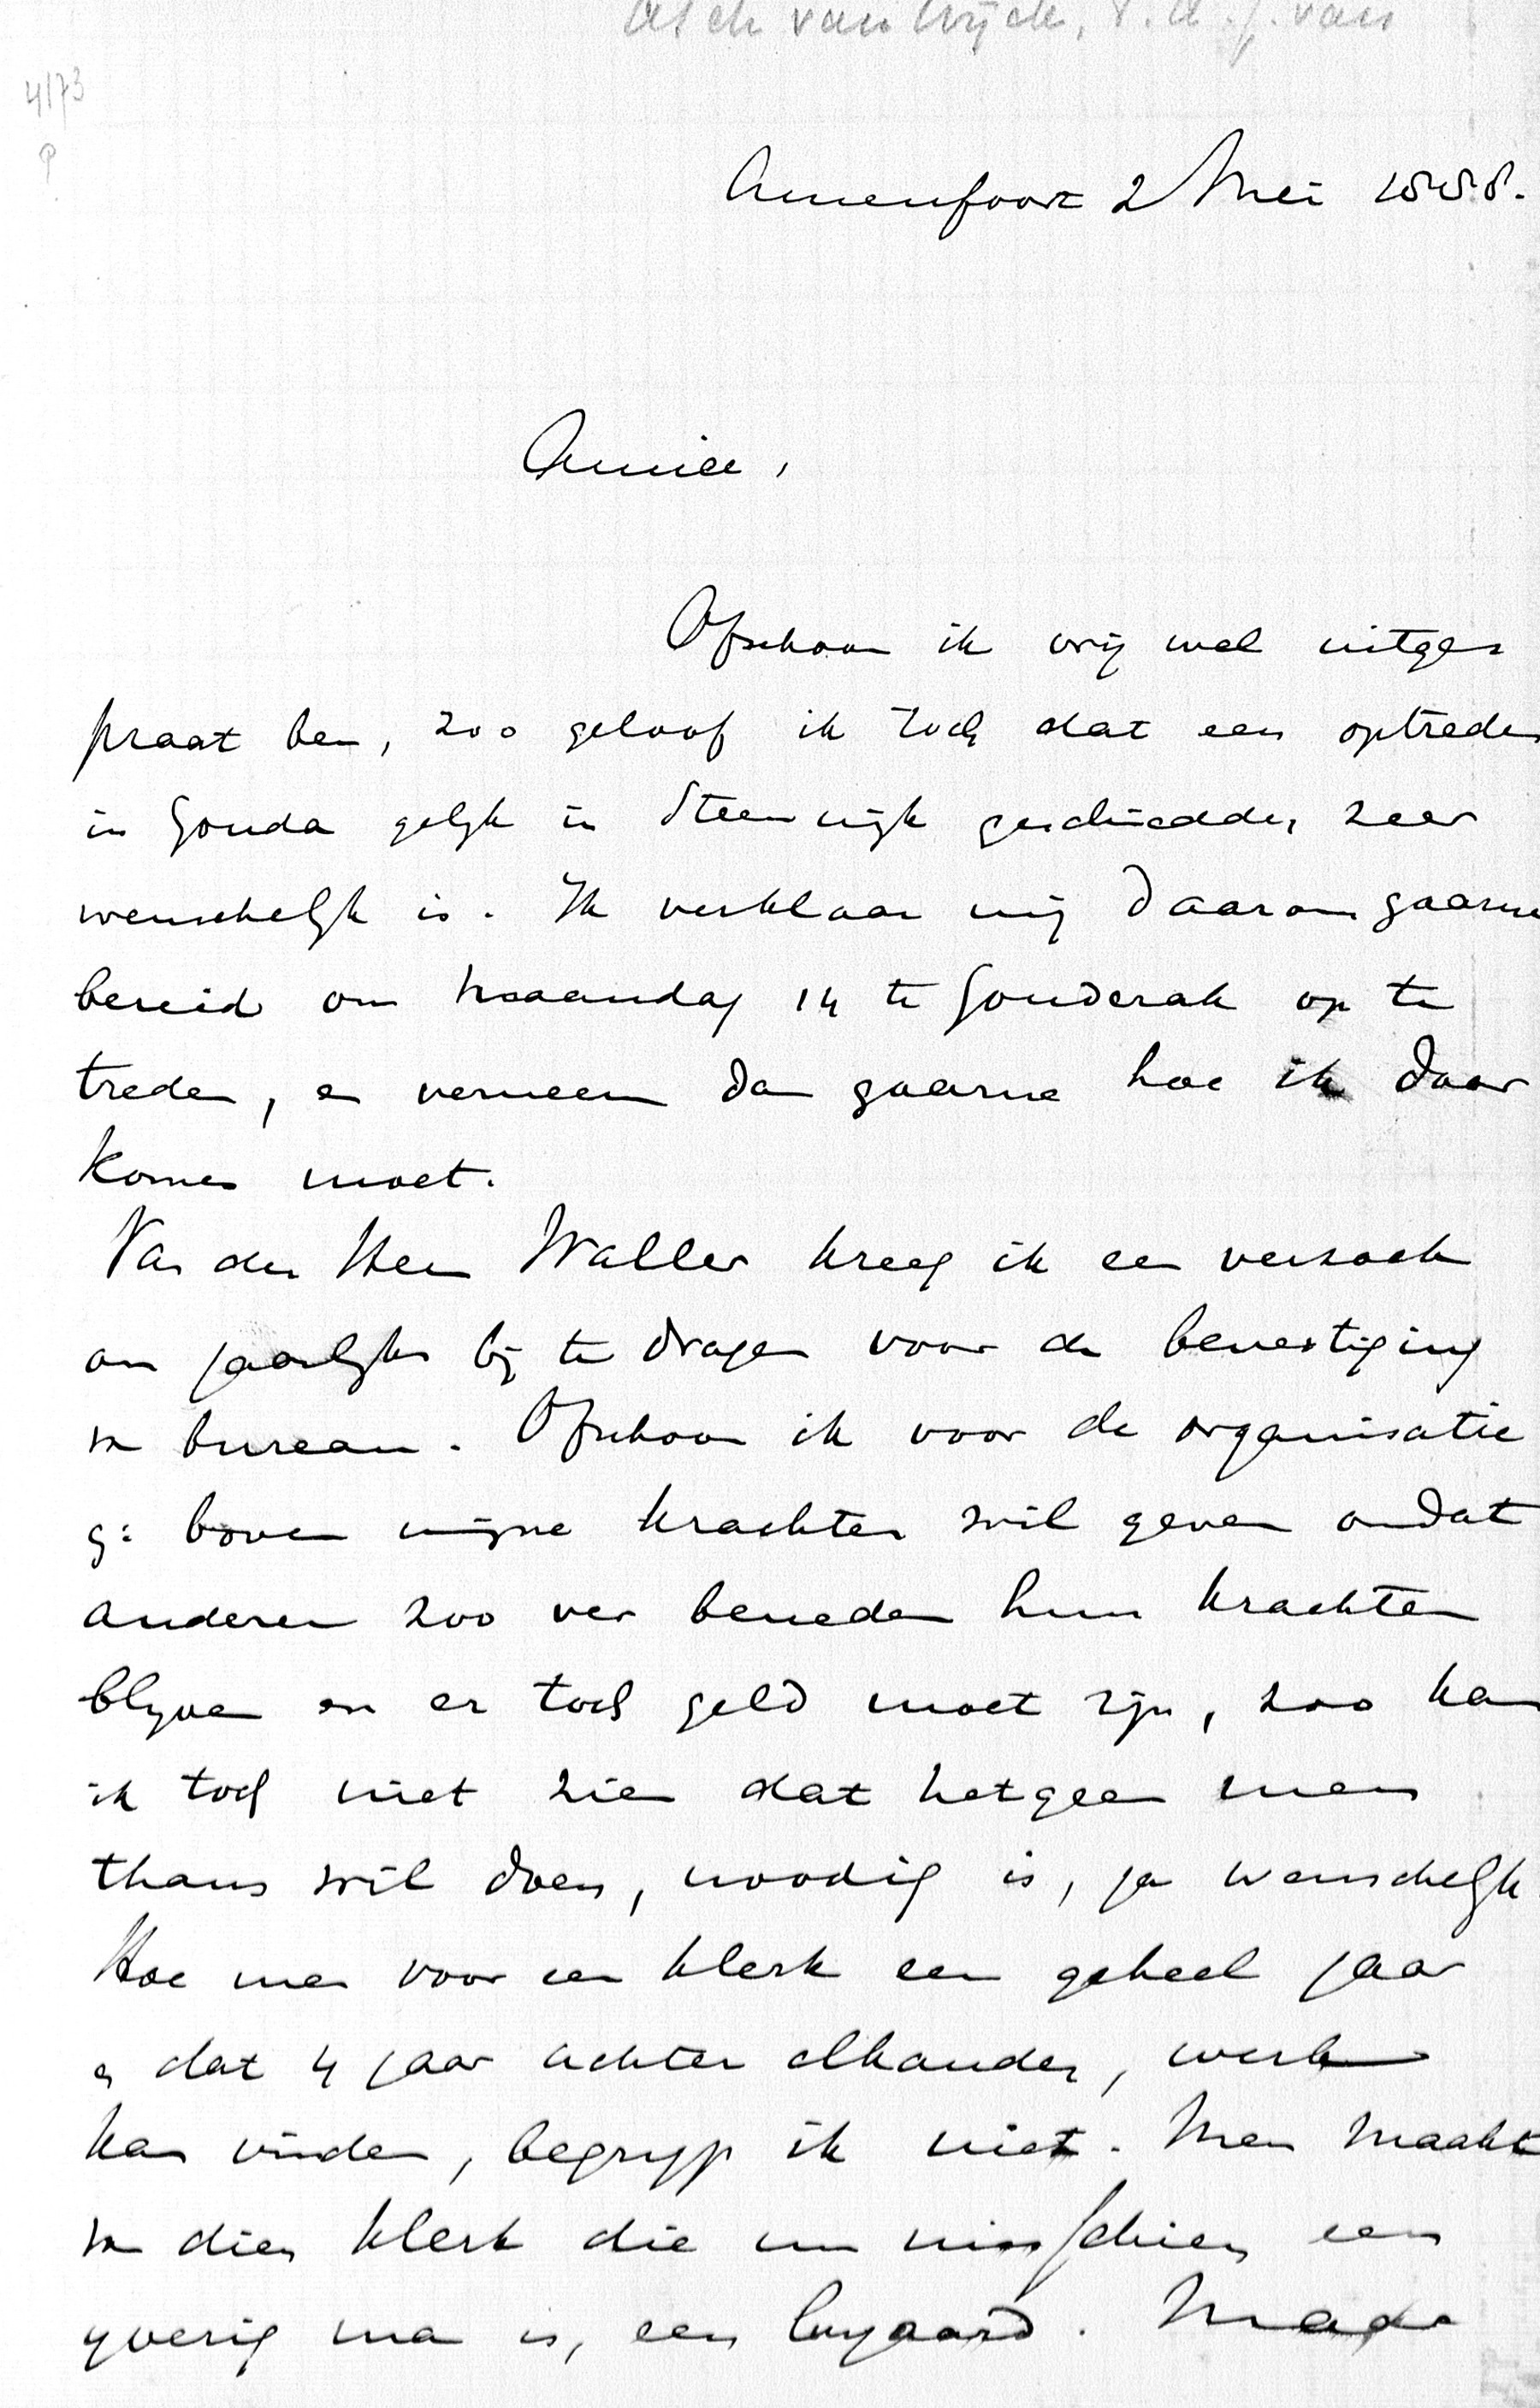 Asch van Wijck, v. d. J. van
4173
P
Amersfoort 2 Mei 1888.
Amice,
Ofschoon ik vrij wel uitges
praat ben, zoo geloof ik toch dat een optreden
in Gouda gelijk in Steenwijk geschiedde, zeer
wenschelijk is. Ik verklaar mij daarom gaarne
bereid om Maandag 14 te Gouderak op te
treden, en verneem dan gaarne hoe ik daar
komen moet.
Van den Heer Waller kreeg ik een verzoek
om jaarlijks bij te dragen voor de bevestiging
vn bureau. Ofschoon ik voor de organisatie
g: boven mijne krachten wil geven omdat
anderen zoo ver beneden hun krachten
blijven en er toch geld moet zijn, zoo kan
ik toch niet zien dat hetgeen men
thans wil doen, noodig is, ja wenschelijk
Hoe men voor een klerk een geheel jaar
en dat 4 jaar achter elkander, werk
kan vinden, begrijp ik niet. Men maakt
vn dien klerk die nu misschien een
ijverig man is, een luijaard. Maar